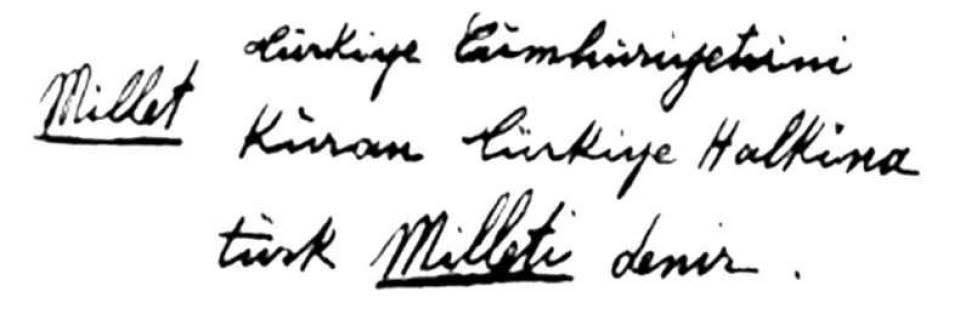 Millet
Türkiye Cümhuriyetini
Kuran Türkiye Halkina
türk Milleti denir.